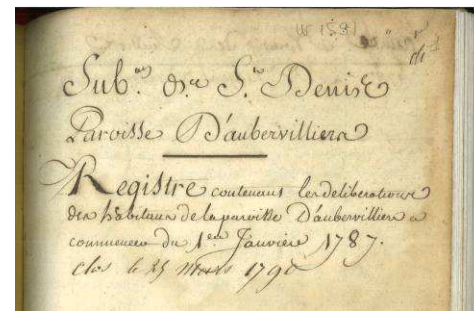 Sub.on de St. Denis
Paroisse D'aubervilliers
Registre contenant les deliberations
des habitans de la paroisse D'aubervilliers a
commencer du 1er Janvier 1787.
Clos le 25 Mars 1790